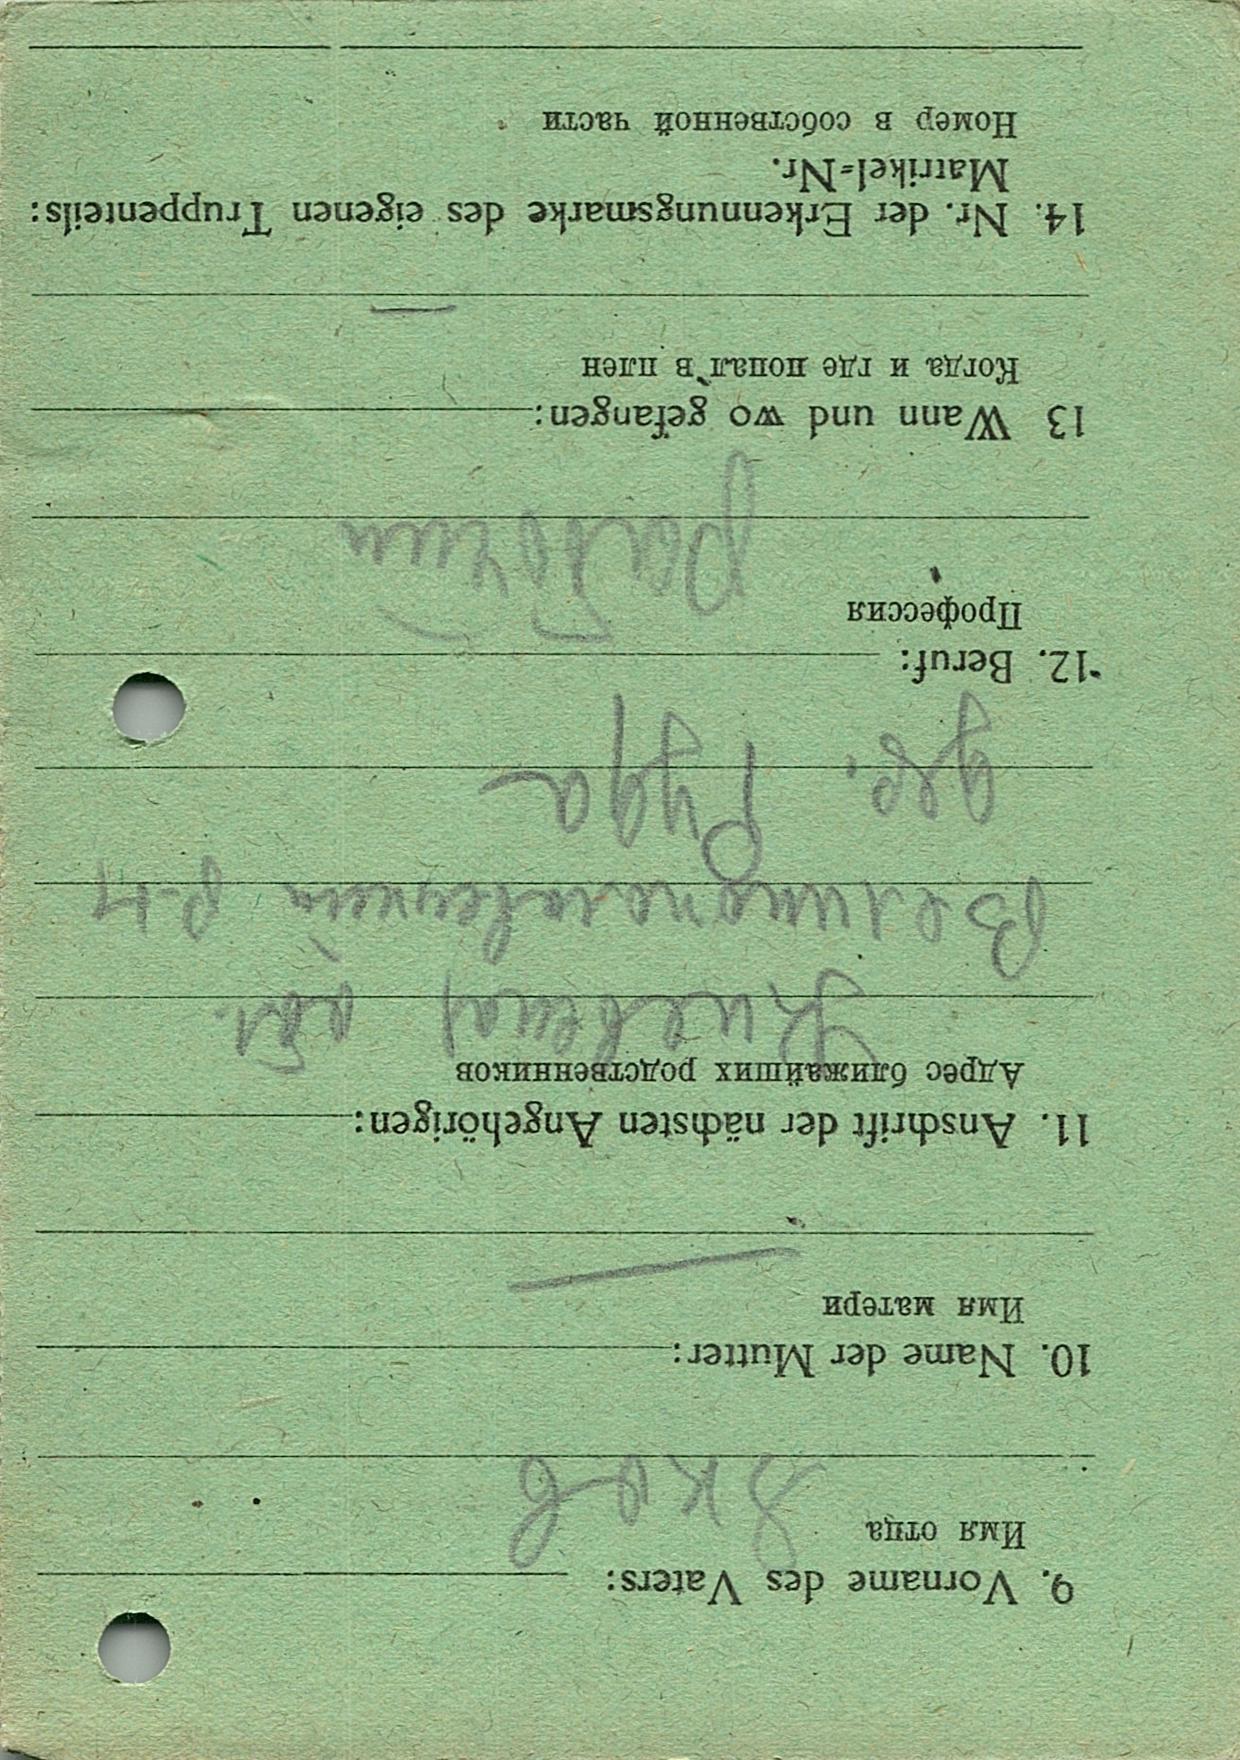 9. Vorname des Vaters:
Имя отца
Яков
10. Name der Mutter:
Имя матери
11. Anschrift der nächsten Angehörigen:
Адрес ближайших родственников
Киевская обл.
р-н
дер. Руда
12. Beruf:
Профессия
рабочий
13 Wann und wo gefangen:
Когда и где попал в плен
14. Nr. der Erkennungsmarke des eigenen Truppenteils:
Matrikel-Nr.
Номер в собственной части